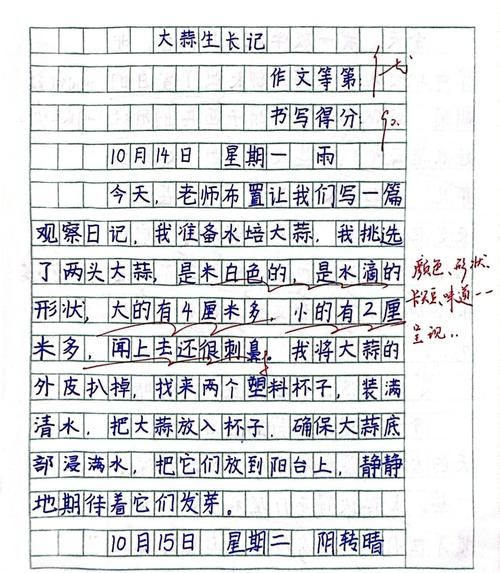 大蒜生长记
作文等第:
书写得分:
10月14日 星期一 雨
今天,老师布置让我们写一篇
观察日记,我准备水培大蒜,我挑选
了两头大蒜,是米白色的,是水滴的
形状,大的有4厘米多,小的有2厘
米多,闻上去还很刺鼻。我将大蒜的
外皮扒掉,找来两个塑料杯子,装满
清水,把大蒜放入杯子,确保大蒜底
部浸满水,把它们放到阳台上,静静
地期待着它们发芽。
10月15日 星期二 阴转晴
颜色、形状
长短、味道一一
呈现..